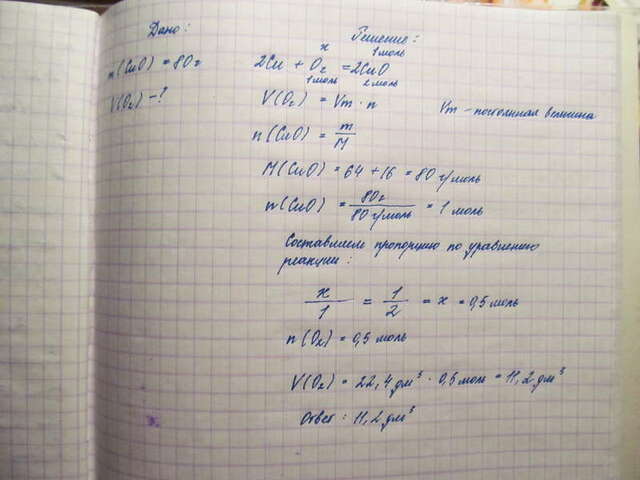 Дано:
m(CuO) = 80г
V(O₂) - ?
Решение:
x 1 моль
2Cu + O₂ = 2CuO
1 моль 2 моль
V(O₂) = Vm · n Vm - постоянная величина
n(CuO) = m/M
M(CuO) = 64 + 16 = 80 г/моль
n(CuO) = 80г/80 г/моль = 1 моль
Составляем пропорцию по уравнению
реакции:
x/1 = 1/2 = x = 0,5 моль
n(O₂) = 0,5 моль
V(O₂) = 22,4 дм³ · 0,5 моль = 11,2 дм³
Ответ: 11,2 дм³